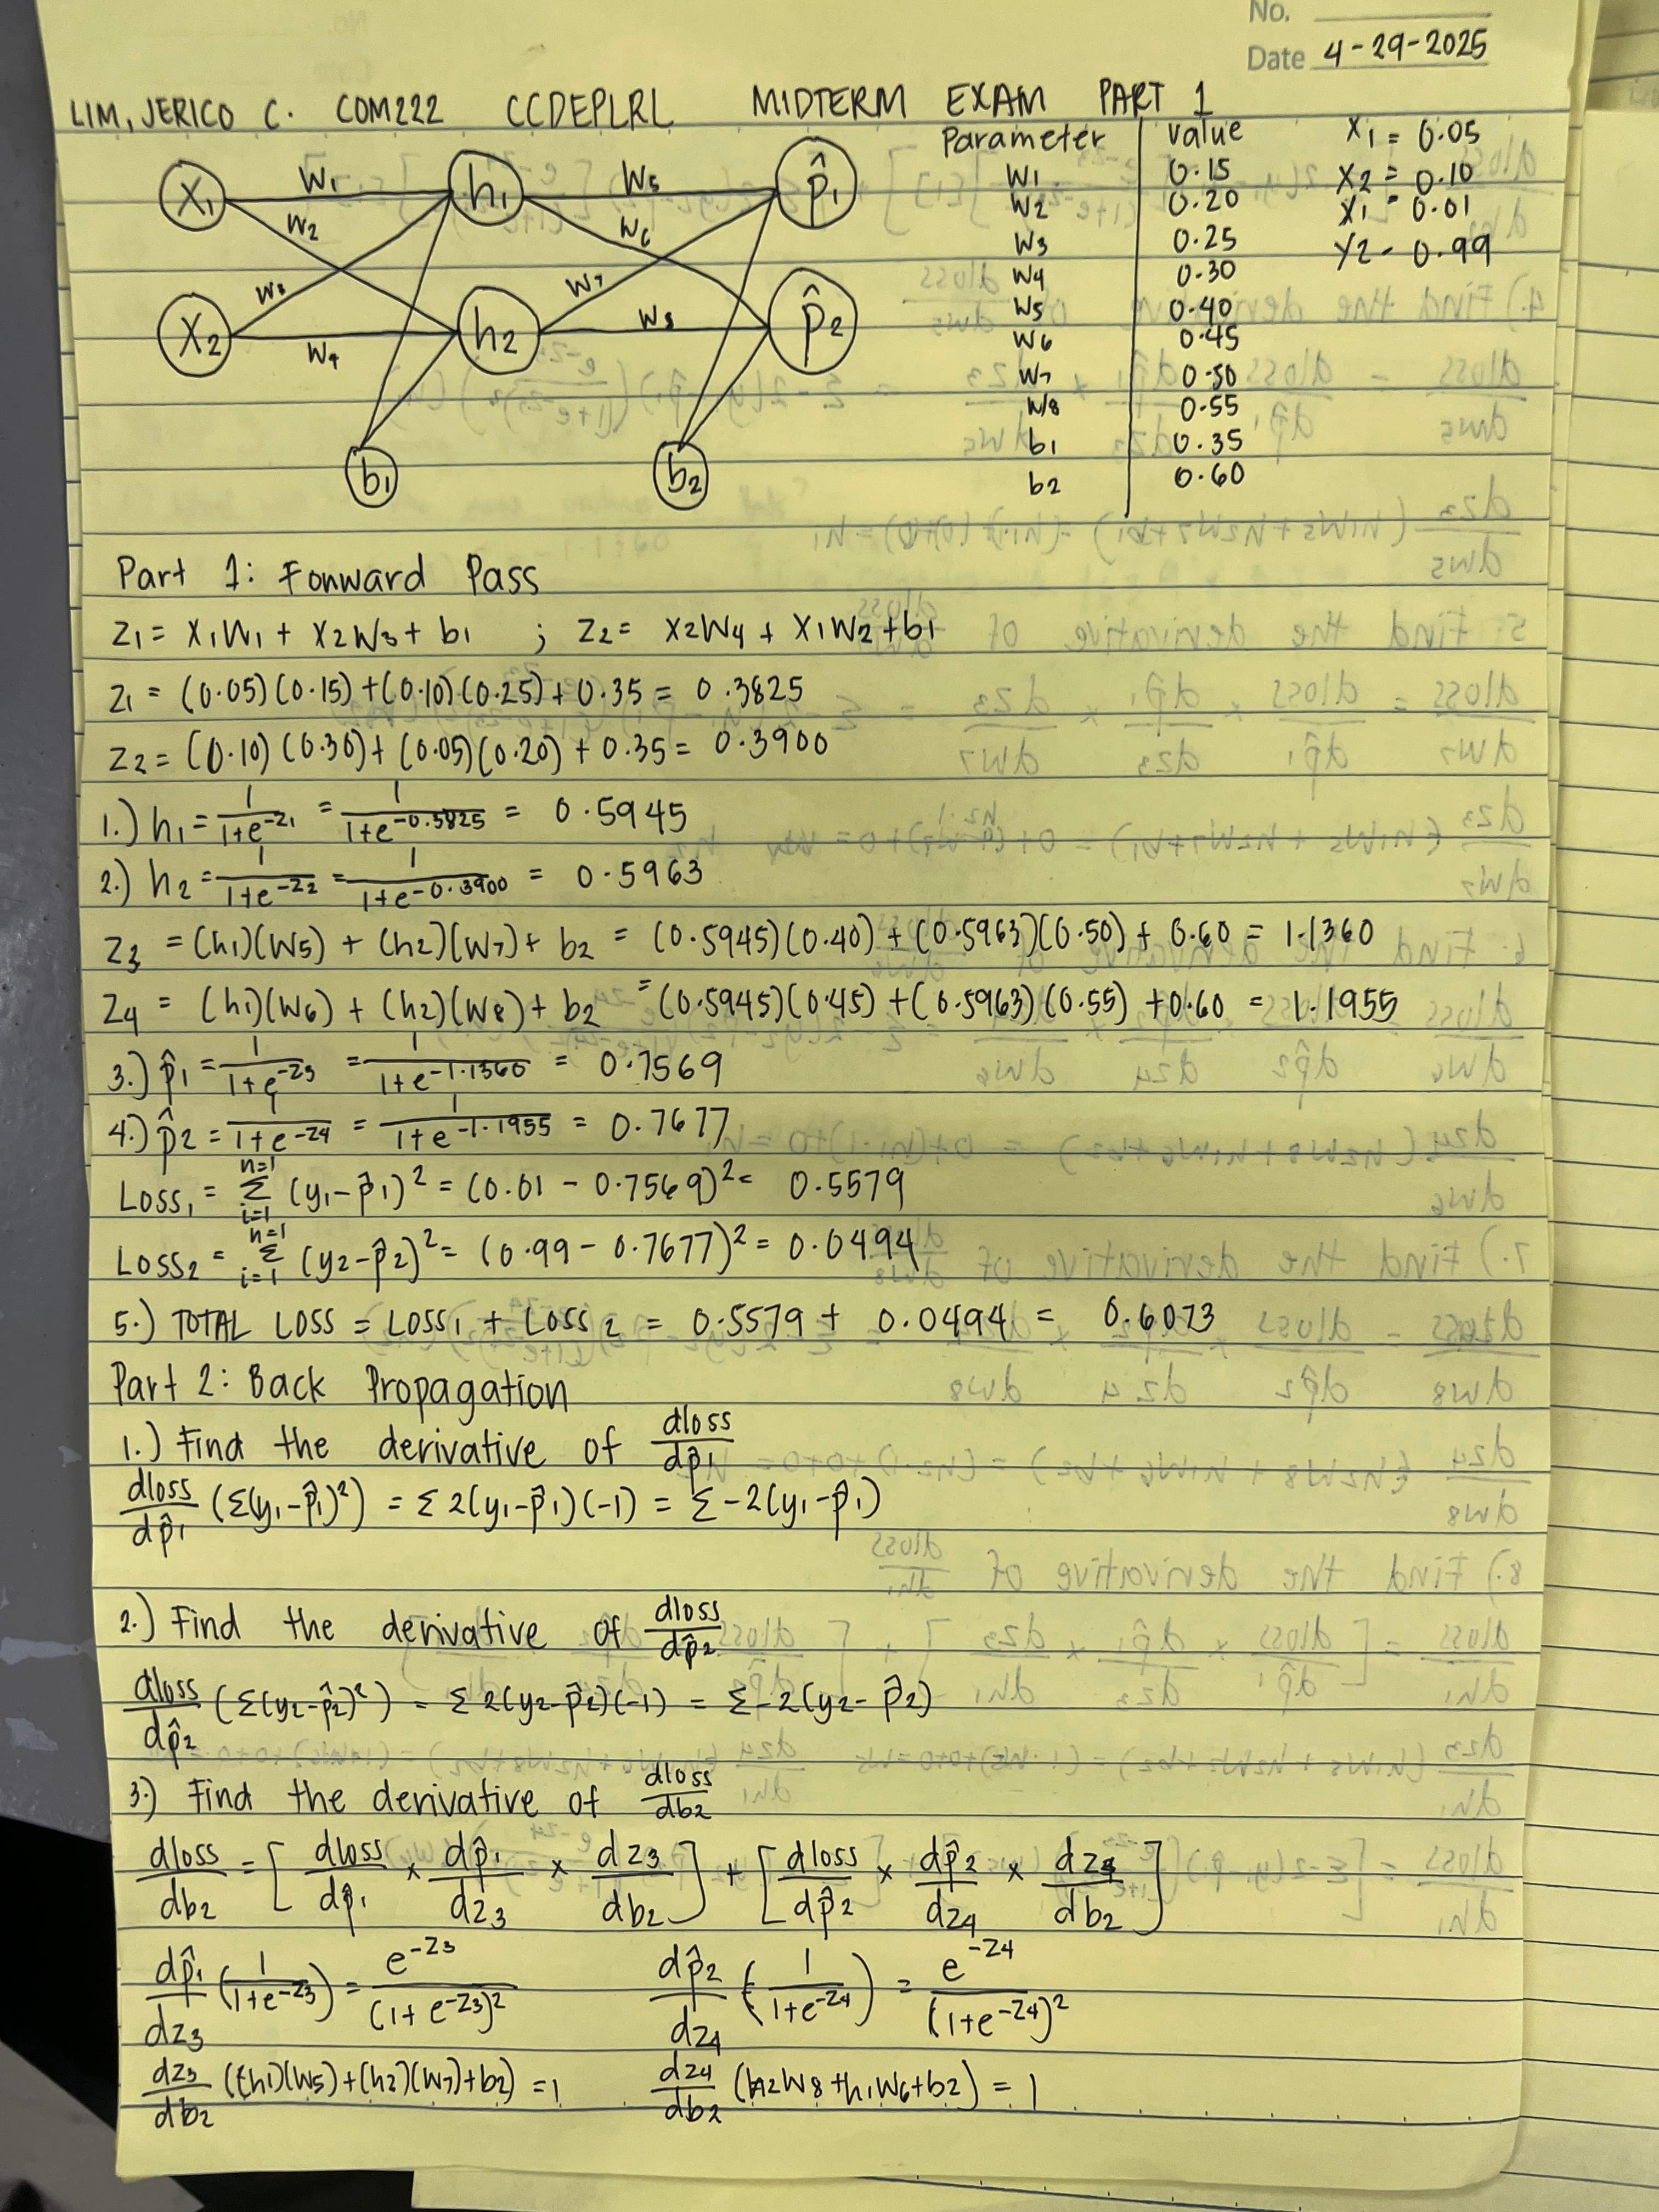 No.
Date 4-29-2025
LIM, JERICO C. COM222 CCDEPLRL MIDTERM EXAM PART 1
x1 w1 h1 w5 p̂1
w2 w6
w3 w7
x2 w4 h2 w8 p̂2
b1 b2
Parameter value
w1 0.15
w2 0.20
w3 0.25
w4 0.30
w5 0.40
w6 0.45
w7 0.50
w8 0.55
b1 0.35
b2 0.60
x1 = 0.05
x2 = 0.10
x1 = 0.01
y2 - 0.99
Part 1: Forward Pass
z1 = x1w1 + x2w3 + b1 ; z2 = x2w4 + x1w2 + b1
z1 = (0.05)(0.15) + (0.10)(0.25) + 0.35 = 0.3825
z2 = (0.10)(0.30) + (0.05)(0.20) + 0.35 = 0.3900
1.) h1 = 1/(1+e^-z1) = 1/(1+e^-0.3825) = 0.5945
2.) h2 = 1/(1+e^-z2) = 1/(1+e^-0.3900) = 0.5963
z3 = (h1)(w5) + (h2)(w7) + b2 = (0.5945)(0.40) + (0.5963)(0.50) + 0.60 = 1.1360
z4 = (h1)(w6) + (h2)(w8) + b2 = (0.5945)(0.45) + (0.5963)(0.55) + 0.60 = 1.1955
3.) p̂1 = 1/(1+e^-z3) = 1/(1+e^-1.1360) = 0.7569
4.) p̂2 = 1/(1+e^-z4) = 1/(1+e^-1.1955) = 0.7677
Loss1 = n=1 Σ i=1 (y1-p̂1)^2 = (0.01 - 0.7569)^2 = 0.5579
Loss2 = n=1 Σ i=1 (y2-p̂2)^2 = (0.99 - 0.7677)^2 = 0.0494
5.) TOTAL LOSS = LOSS1 + LOSS2 = 0.5579 + 0.0494 = 0.6073
Part 2: Back Propagation
1.) Find the derivative of dloss/dp̂1
dloss/dp̂1 (Σ(y1-p̂1)^2) = Σ 2(y1-p̂1)(-1) = Σ -2(y1-p̂1)
2.) Find the derivative of dloss/dp̂2
dloss/dp̂2 (Σ(y2-p̂2)^2) = Σ 2(y2-p̂2)(-1) = Σ -2(y2-p̂2)
3.) Find the derivative of dloss/db2
dloss/db2 = [dloss/dp̂1 × dp̂1/dz3 × dz3/db2] + [dloss/dp̂2 × dp̂2/dz4 × dz4/db2]
dp̂1/dz3 (1/(1+e^-z3)) = e^-z3/(1+e^-z3)^2 dp̂2/dz4 (1/(1+e^-z4)) = e^-z4/(1+e^-z4)^2
dz3/db2 ((h1)(w5)+(h2)(w7)+b2) = 1 dz4/db2 (h2w8+h1w6+b2) = 1